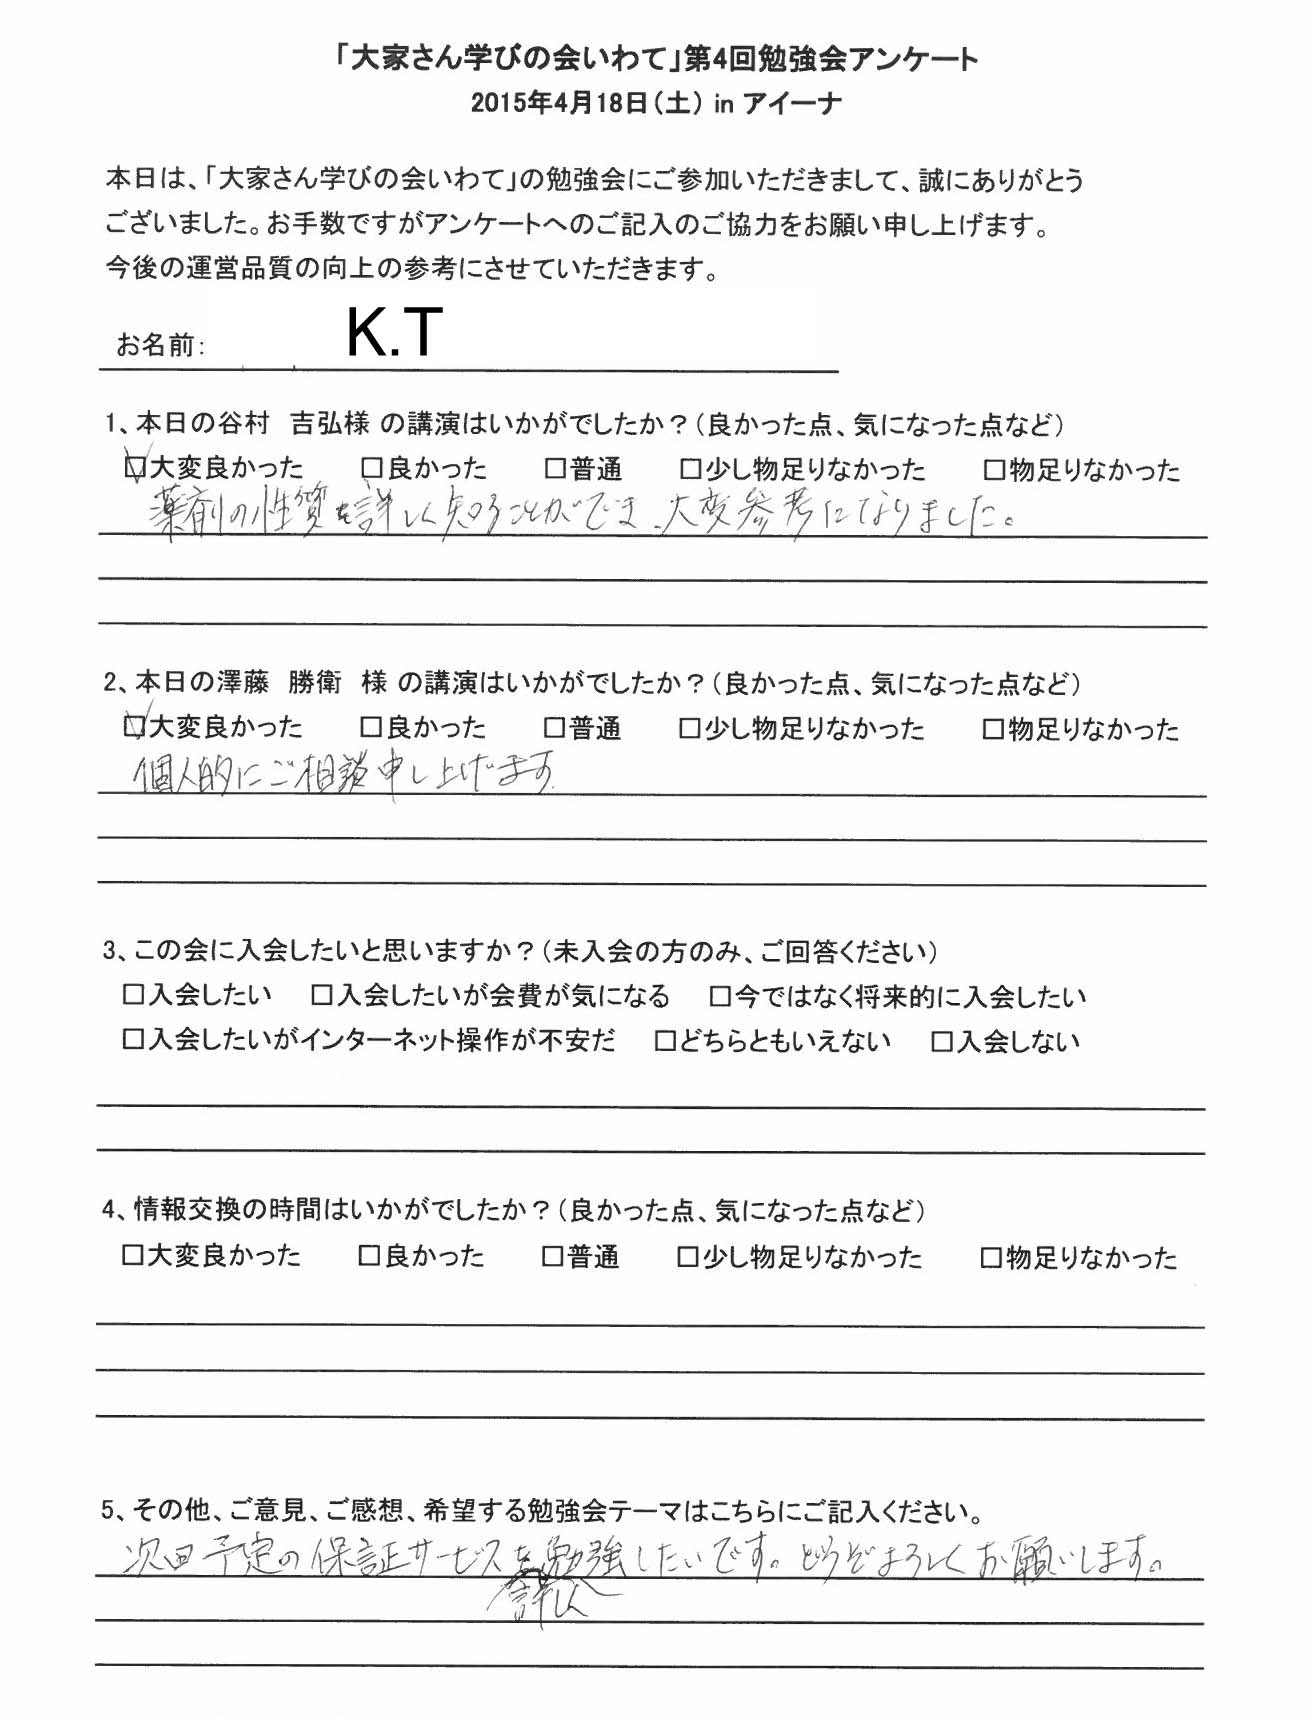 「大家さん学びの会いわて」第4回勉強会アンケート
2015年4月18日(土) in アイーナ
本日は、「大家さん学びの会いわて」の勉強会にご参加いただきまして、誠にありがとう
ございました。お手数ですがアンケートへのご記入のご協力をお願い申し上げます。
今後の運営品質の向上の参考にさせていただきます。
お名前: K.T
1、本日の谷村 吉弘様 の講演はいかがでしたか?(良かった点、気になった点など)
☑大変良かった □良かった □普通 □少し物足りなかった □物足りなかった
薬剤の性質を詳しく知ることができ、大変参考になりました。
2、本日の澤藤 勝衛 様 の講演はいかがでしたか?(良かった点、気になった点など)
☑大変良かった □良かった □普通 □少し物足りなかった □物足りなかった
個人的にご相談申し上げます
3、この会に入会したいと思いますか?(未入会の方のみ、ご回答ください)
□入会したい □入会したいが会費が気になる □今ではなく将来的に入会したい
□入会したいがインターネット操作が不安だ □どちらともいえない □入会しない
4、情報交換の時間はいかがでしたか?(良かった点、気になった点など)
□大変良かった □良かった □普通 □少し物足りなかった □物足りなかった
5、その他、ご意見、ご感想、希望する勉強会テーマはこちらにご記入ください。
次回予定の保証サービスを勉強したいです。どうぞよろしくお願いします。
詳しく